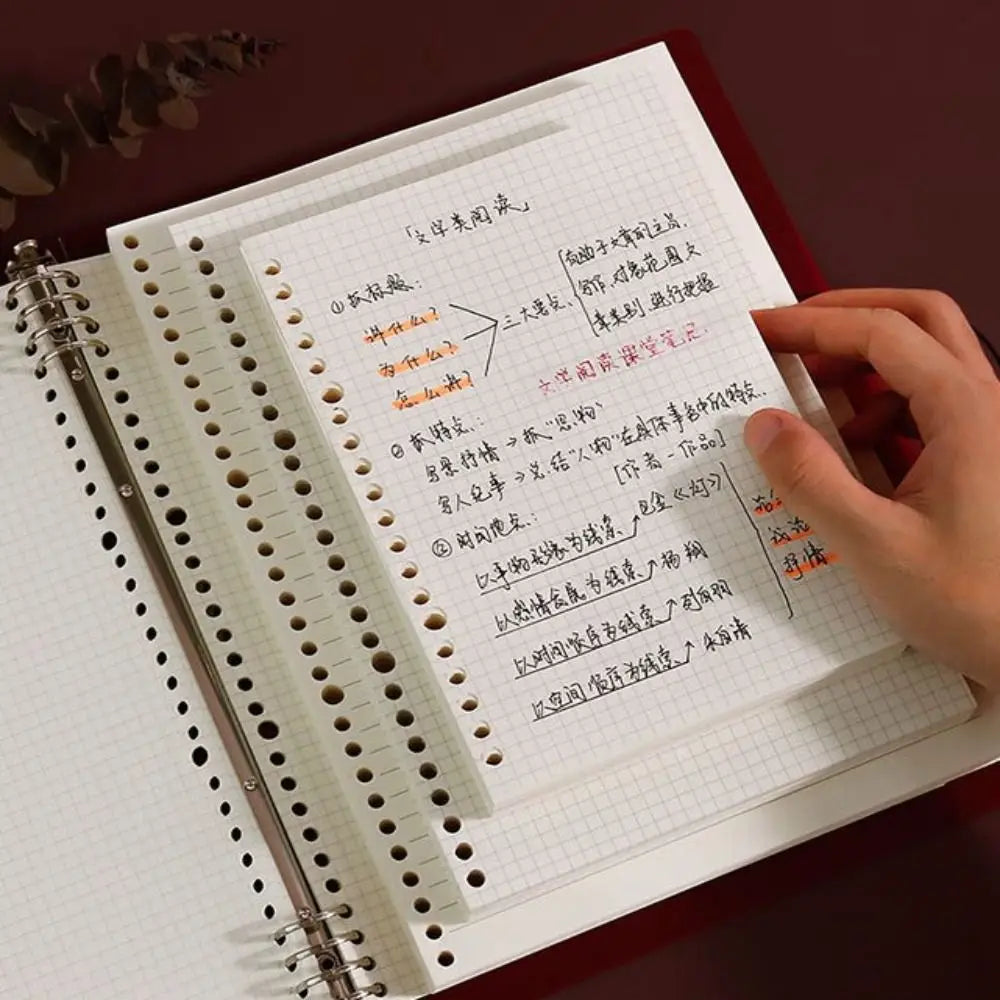 「文学类阅读」
① 抓标题：
讲什么？
为什么？
怎么讲？
三大要点
有助于文章的主旨、
写作、对象范围文
章类别，进行把握
文学阅读课堂笔记
② 抓特点：
写景抒情 → 抓“景物”
写人记事 → 总结“人物”在具体事务中的特点
[作者-作品]
② 时间地点：
以事物形象为线索 → 巴金《灯》
以感情发展为线索 → 杨朔
以时间顺序为线索 → 刘白羽
以空间顺序为线索 → 朱自清
议论
抒情